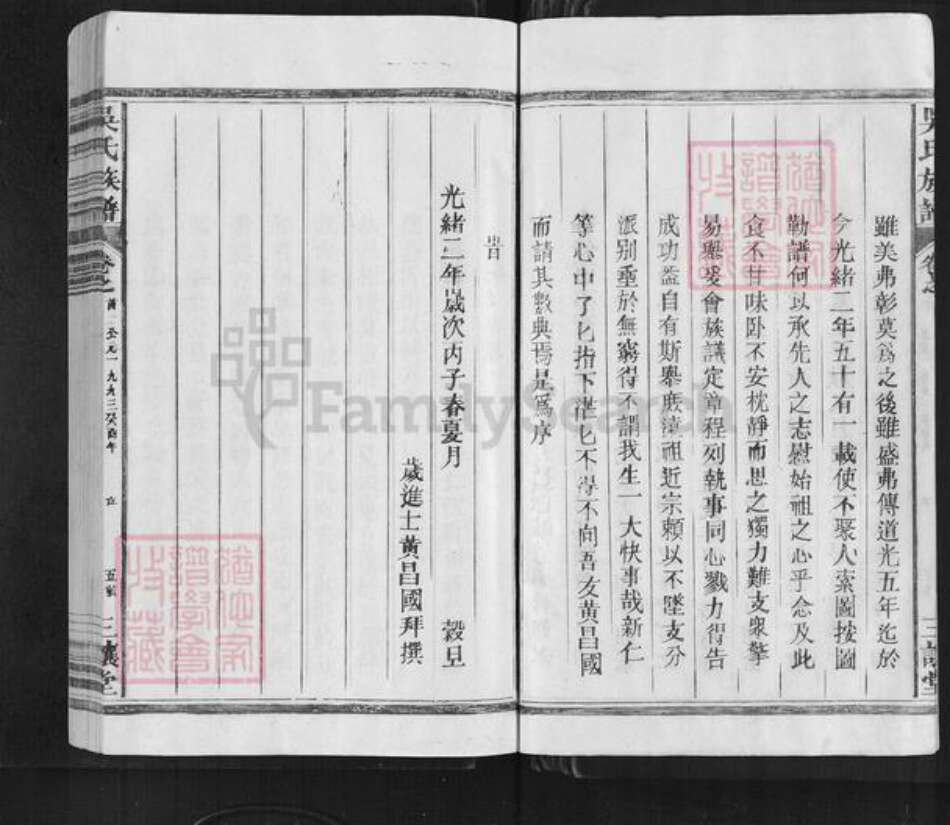 雖美弗彰莫為之後雖盛弗傳道光五年迄於
今光緒二年五十有一載使不聚人索圖按圖
勒譜何以承先人之志慰始祖之心乎念及此
食不甘味卧不安枕靜而思之獨力難支衆擎
易舉爰會族議定章程列執事同心戮力得告
成功益自有斯舉庶遠祖近宗賴以不墜支分
派别垂於無窮得不謂我生一大快事哉新仁
等心中了匕指下茫匕不得不向吾友黃昌國
而請其數典焉是為序
旹
光緒二年歲次丙子春夏月 穀旦
歲進士黃昌國拜撰
吳氏族譜 卷之 公元一九九三癸酉年 三讓堂
猶他家譜學會收藏
猶他家譜學會收藏
FamilySearch